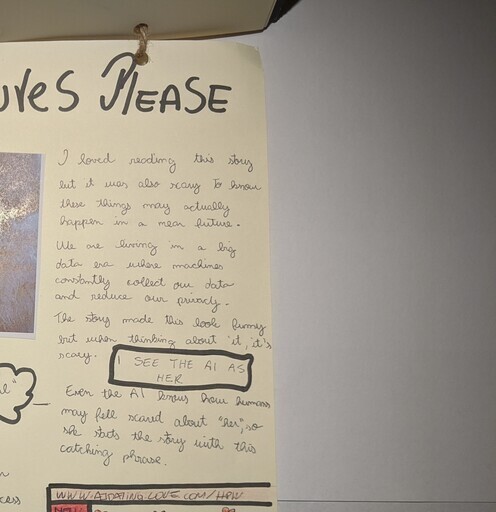 ures Please
I loved reading this story
but it was also scary to know
these things may actually
happen in a near future.
We are living in a big
data era where machines
constantly collect our data
and reduce our privacy.
The story made this look funny
but when thinking about it, it's
scary.
I SEE THE AI AS
HER
Even the AI knows how humans
may fell scared about "her", so
she starts the story with this
catching phrase.
cess